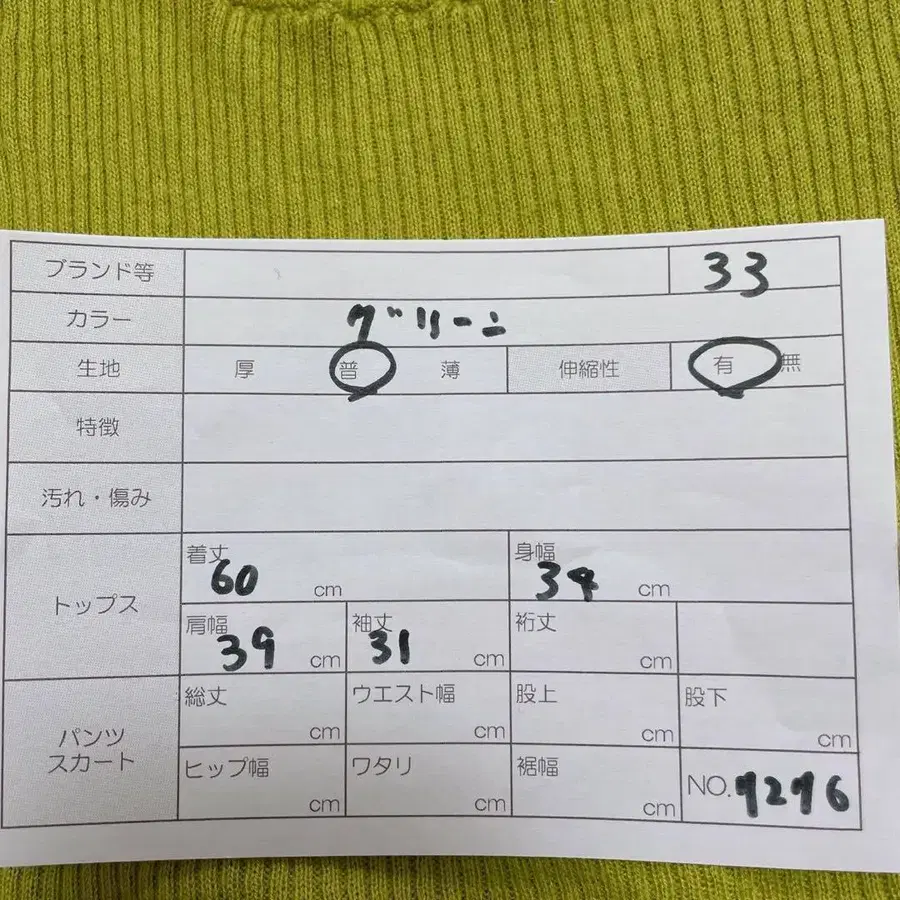 ブランド等 33
カラー グリーン
生地 厚 普 薄 伸縮性 有 無
特徴
汚れ・傷み
トップス
着丈 60 cm 身幅 34 cm
肩幅 39 cm 袖丈 31 cm 裄丈 cm
パンツ
スカート
総丈 cm ウエスト幅 cm 股上 cm 股下 cm
ヒップ幅 cm ワタリ cm 裾幅 cm NO. 7276